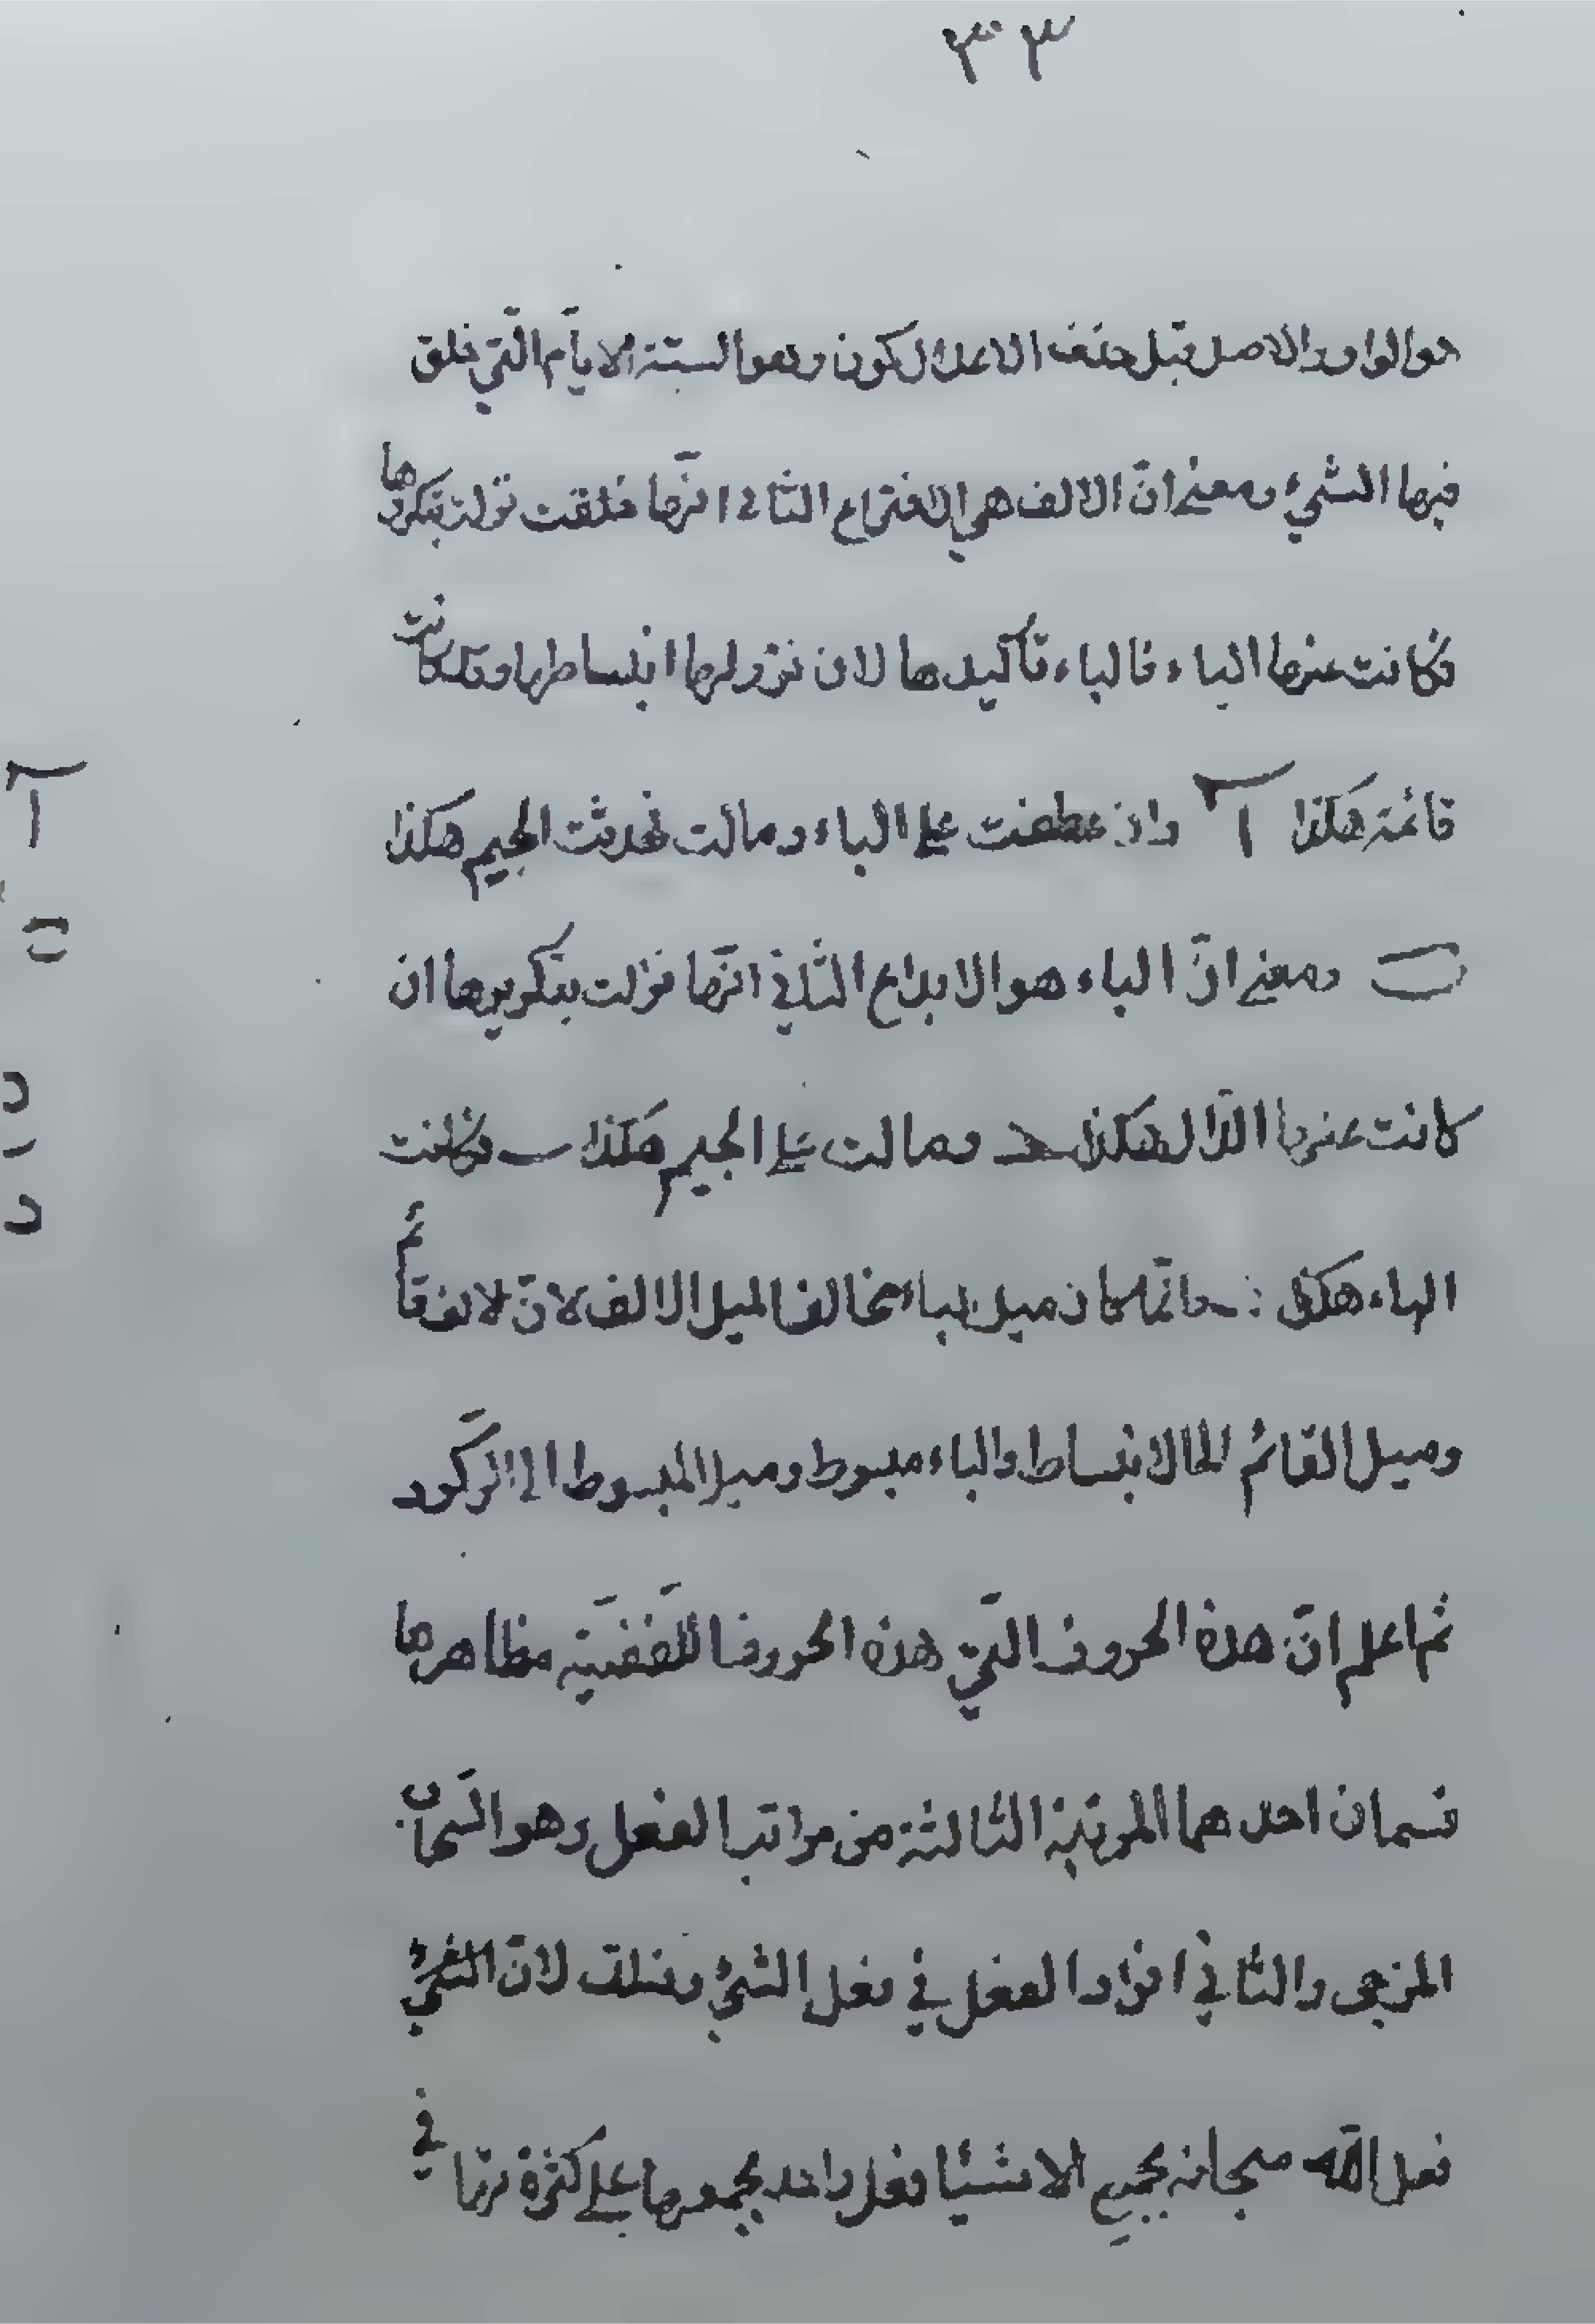 ٣٣
هو الواو والاصل قبل حذف الاعلال كون وهو الستة الايام التي خلق
فيها الشيء ومعنى ان الالف هي الاختراع الثاني انها خلقت نزلت بتكررها
فكانت عنها الباء فالباء تأكيدها لان نزولها انبساطها وقد كانت
قائمة هكذا ا واذ عطفت على الباء ومالت فحدثت الجيم هكذا
ومعنى انّ الباء هو الابداع الثاني انّها نزلت بتكريرها ان
كانت عنها الدال هكذا ومالت على الجيم هكذا فكانت
الهاء هكذا وانّما كان ميل الباء مخالفا لميل الالف لانّ الالف قائم
وميل القائم الى الانبساط والباء مبسوط وميل المبسوط الى الركود
ثم اعلم انّ هذه الحروف التي هذه الحروف اللفظيّة مظاهرها
قسمان احدهما المرتبة الثالثة من مراتب الفعل وهو السّحاب
المزجى والثاني افراد الفعل في فعل الشيء وخلق لانّ الشيء
فعل اللّه سبحانه بجميع الاشيا فعل واحد بجمعها على كثرتها في